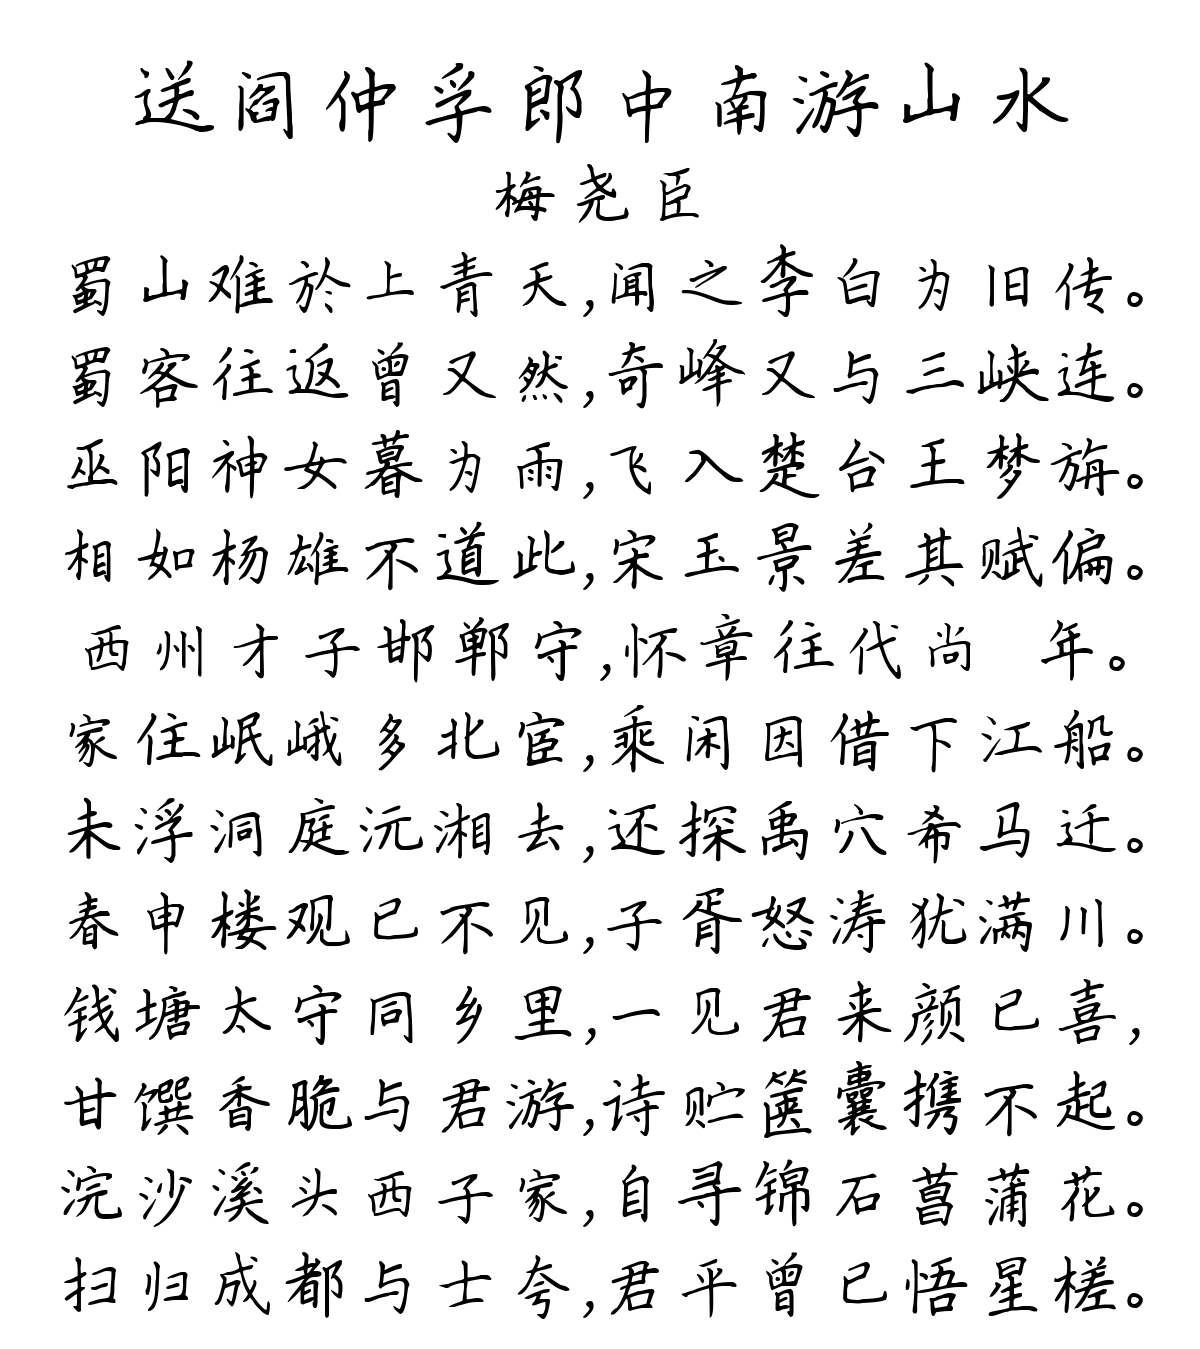 送阎仲孚郎中南游山水
梅尧臣
蜀山难於上青天,闻之李白为旧传。
蜀客往返曾又然,奇峰又与三峡连。
巫阳神女暮为雨,飞入楚台王梦旃。
相如杨雄不道此,宋玉景差其赋偏。
西州才子邯郸守,怀章往代尚 年。
家住岷峨多北宦,乘闲因借下江船。
未浮洞庭沅湘去,还探禹穴希马迁。
春申楼观已不见,子胥怒涛犹满川。
钱塘太守同乡里,一见君来颜已喜,
甘馔香脆与君游,诗贮箧囊携不起。
浣沙溪头西子家,自寻锦石菖蒲花。
扫归成都与士夸,君平曾已悟星槎。